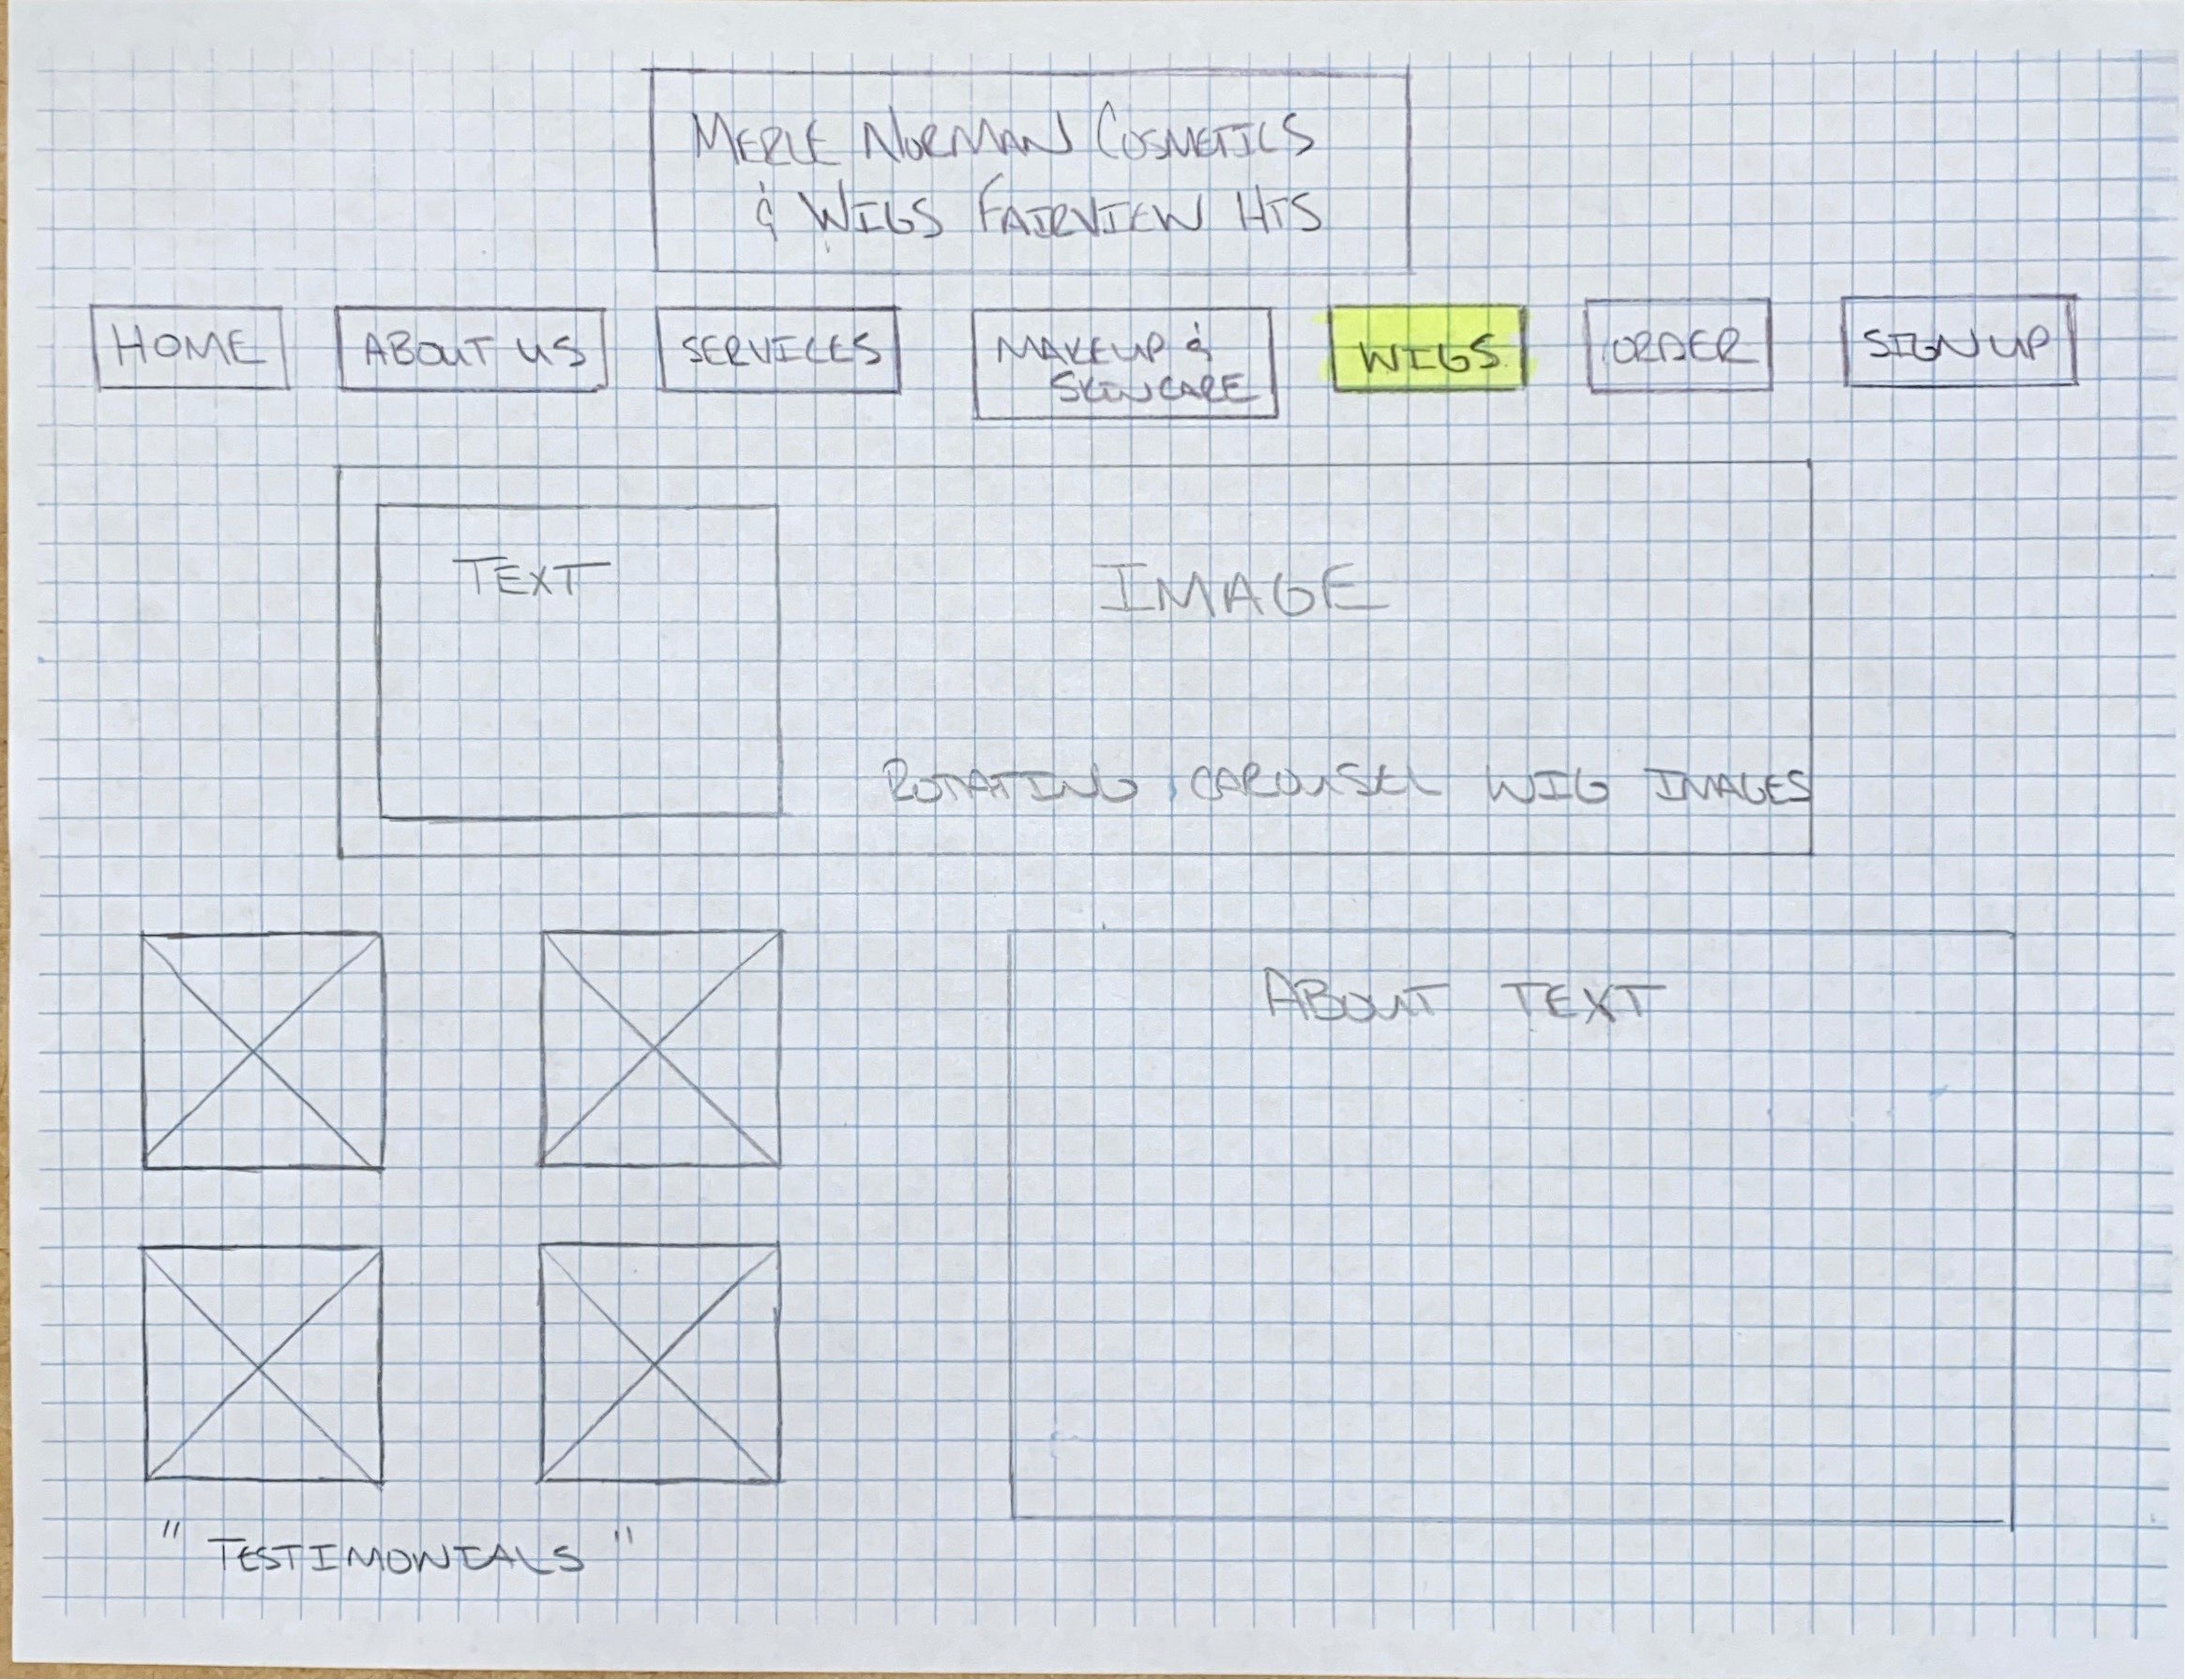 MERLE NORMAN COSMETICS
& WIGS FAIRVIEW HTS
HOME
ABOUT US
SERVICES
MAKEUP &
SKINCARE
WIGS
ORDER
SIGN UP
TEXT
IMAGE
ROTATING CAROUSEL WIG IMAGES
ABOUT TEXT
" TESTIMONIALS "